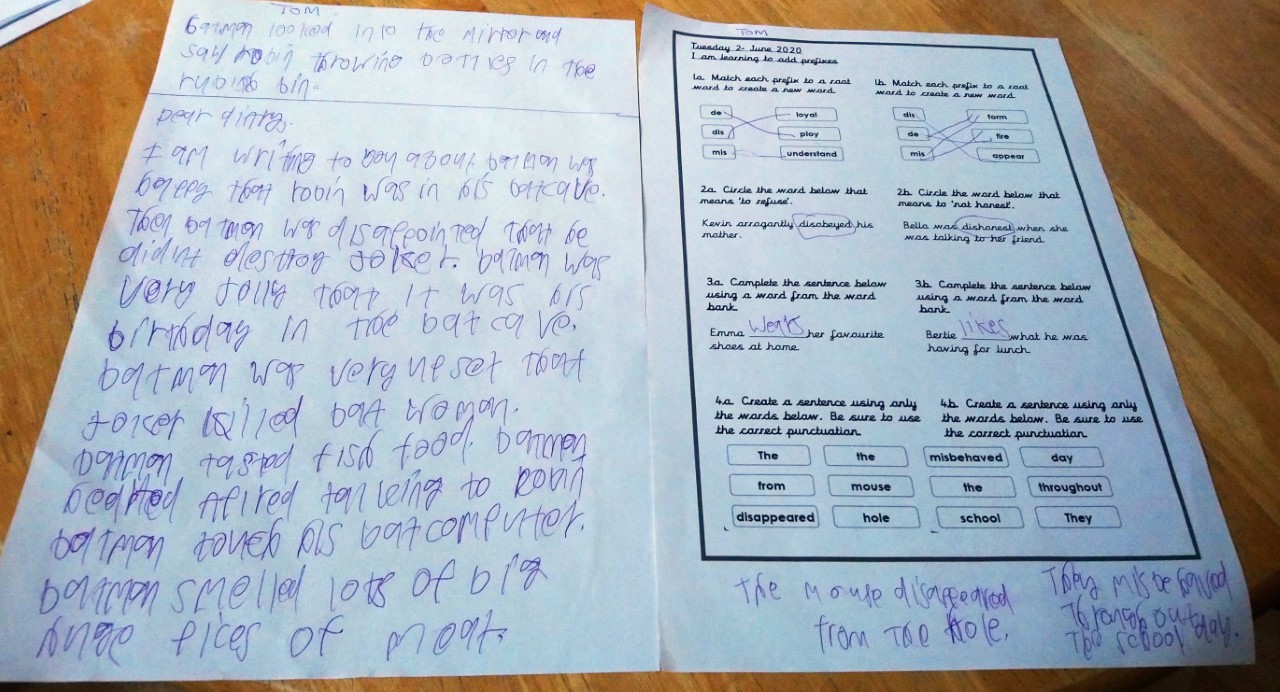 TOM
batman looked into the mirror and
saw robin throwing batteries in the
rubish bin.
Dear diary.
I am writing to you about batman was
happy that robin was in his batcave.
Then batman was disappointed that he
didnt destroy Joker. batman was
very jolly that it was his
birthday in the batcave.
batman was very upset that
Joker killed bat woman.
batman tasted fish food. batman
hearted Alfred talking to Robin
batman touch his batcomputer.
batman smelled lots of big
huge pices of meat.
TOM
Tuesday 2nd June 2020
I am learning to add prefixes
1a. Match each prefix to a root
word to create a new word.
de loyal
dis ploy
mis understand
1b. Match each prefix to a root
word to create a new word.
dis form
de fire
mis appear
2a. Circle the word below that
means 'to refuse'.
Kevin arrogantly disobeyed his
mother.
2b. Circle the word below that
means to 'not honest'.
Bella was dishonest when she
was talking to her friend.
3a. Complete the sentence below
using a word from the word
bank.
Emma wears her favourite
shoes at home.
3b. Complete the sentence below
using a word from the word
bank.
Bertie likes what he was
having for lunch.
4a. Create a sentence using only
the words below. Be sure to use
the correct punctuation.
The the
from mouse
disappeared hole
4b. Create a sentence using only
the words below. Be sure to use
the correct punctuation.
misbehaved day
the throughout
school They
The mouse disappeared
from The hole.
They misbehaved
Throughout day.
The school